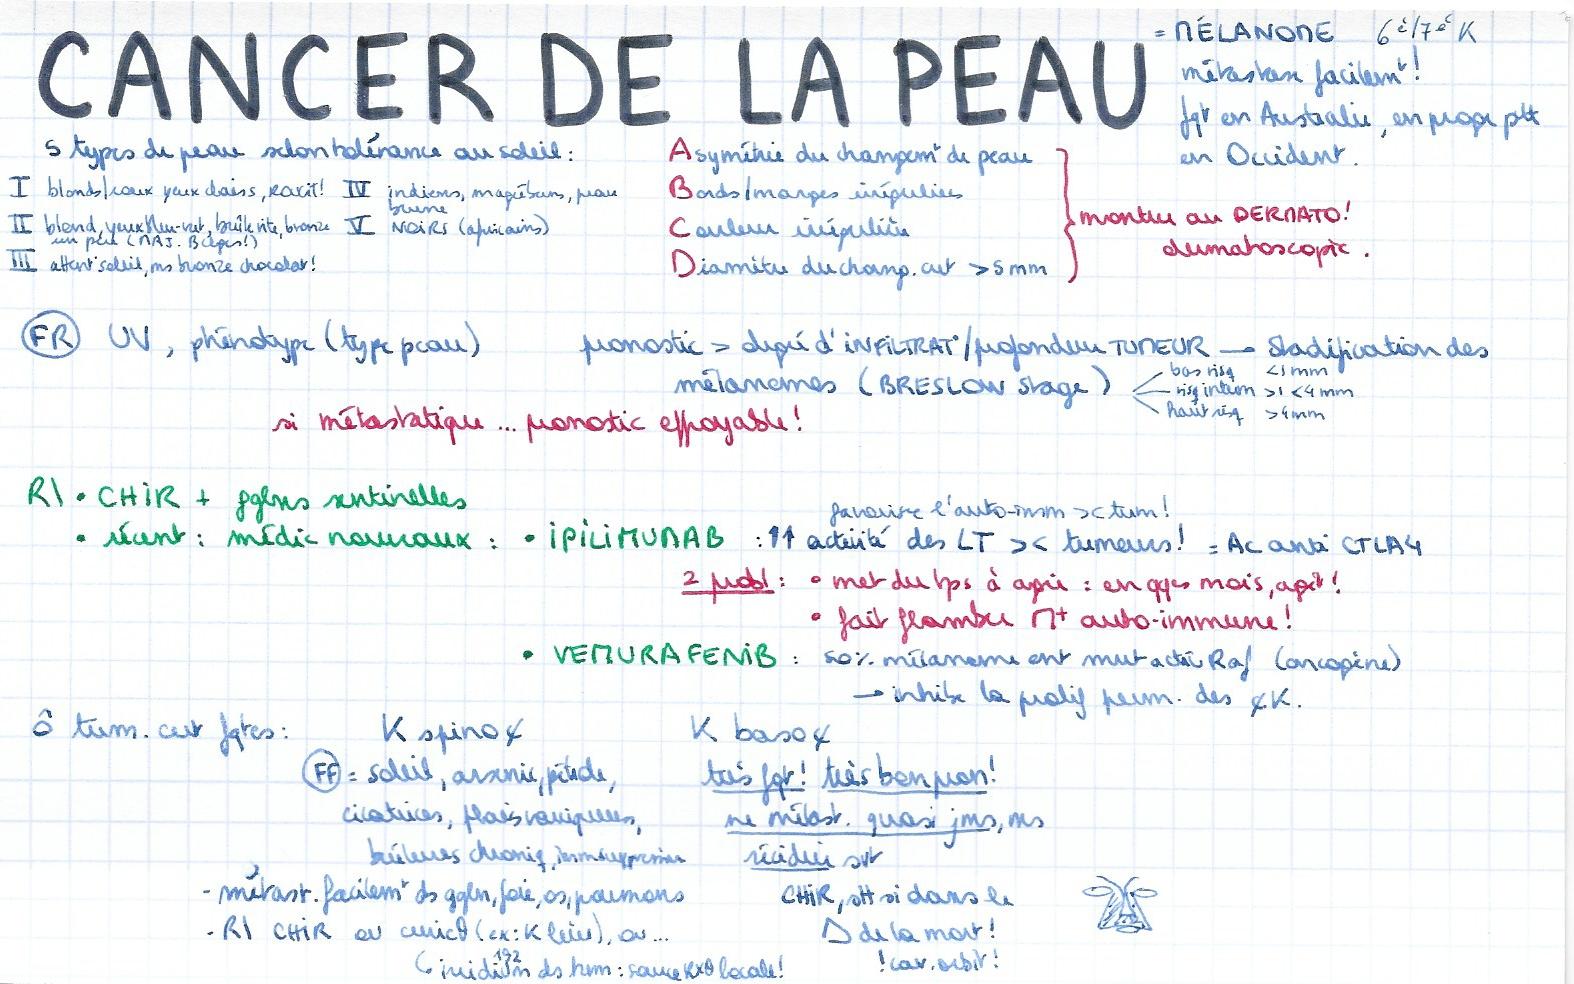 CANCER DE LA PEAU
= MÉLANOME 6è/7è K
métastase facilemt !
fqt en Australie, en progr ptt
en Occident.
5 types de peau selon tolérance au soleil :
I blonds/roux yeux clairs, rarit!
II blond, yeux bleu-vert, brûle vite, bronze
un peu (MAJ. Belges!)
III attent° soleil, ms bronze chocolat!
IV indiens, magrébins, peau
brune
V NOIRS (africains)
Asymétrie du changemt de peau
Bords/marges irrégulières
Couleur irrégulière
Diamètre du chang. cut > 5 mm
montrer au DERMATO!
dermatoscopie.
FR UV, phénotype (type peau)
pronostic > degré d'INFILTRAT°/profondeur TUMEUR → Stadification des
mélanomes (BRESLOW stage)
bas risq <1 mm
risq interm >1 <4 mm
haut risq >4 mm
si métastatique ... pronostic effroyable!
R\ • CHIR + gglns sentinelles
• récent : médic nouveaux :
favorise l'auto-imm >< tum!
• IPILIMUMAB : ↑↑ activité des LT >< tumeurs! = Ac anti CTLA4
2 probl : • met du tps à agir : en qqes mois, agit!
• fait flamber M+ auto-immune!
• VEMURAFENIB : 50% mélanome ont mut activ Raf (oncogène)
→ inhibe la prolif perm. des ¢K.
ô tum. cut fqtes :
K spino¢
FF = soleil, arsenic, pétrole,
cicatrices, plaies variqueuses,
brûlures chroniq, immsuppression
- métast. facilemt ds ggln, foie, os, poumons
- R\ CHIR ou curieθ (ex : K lèvre), ou...
iridium 192 ds hem : source RXθ locale!
K baso¢
très fqt! très bon pron!
ne métast. quasi jms, ms
récidive svt
CHIR, stt si dans le
Δ de la mort!
! cav. orbit!